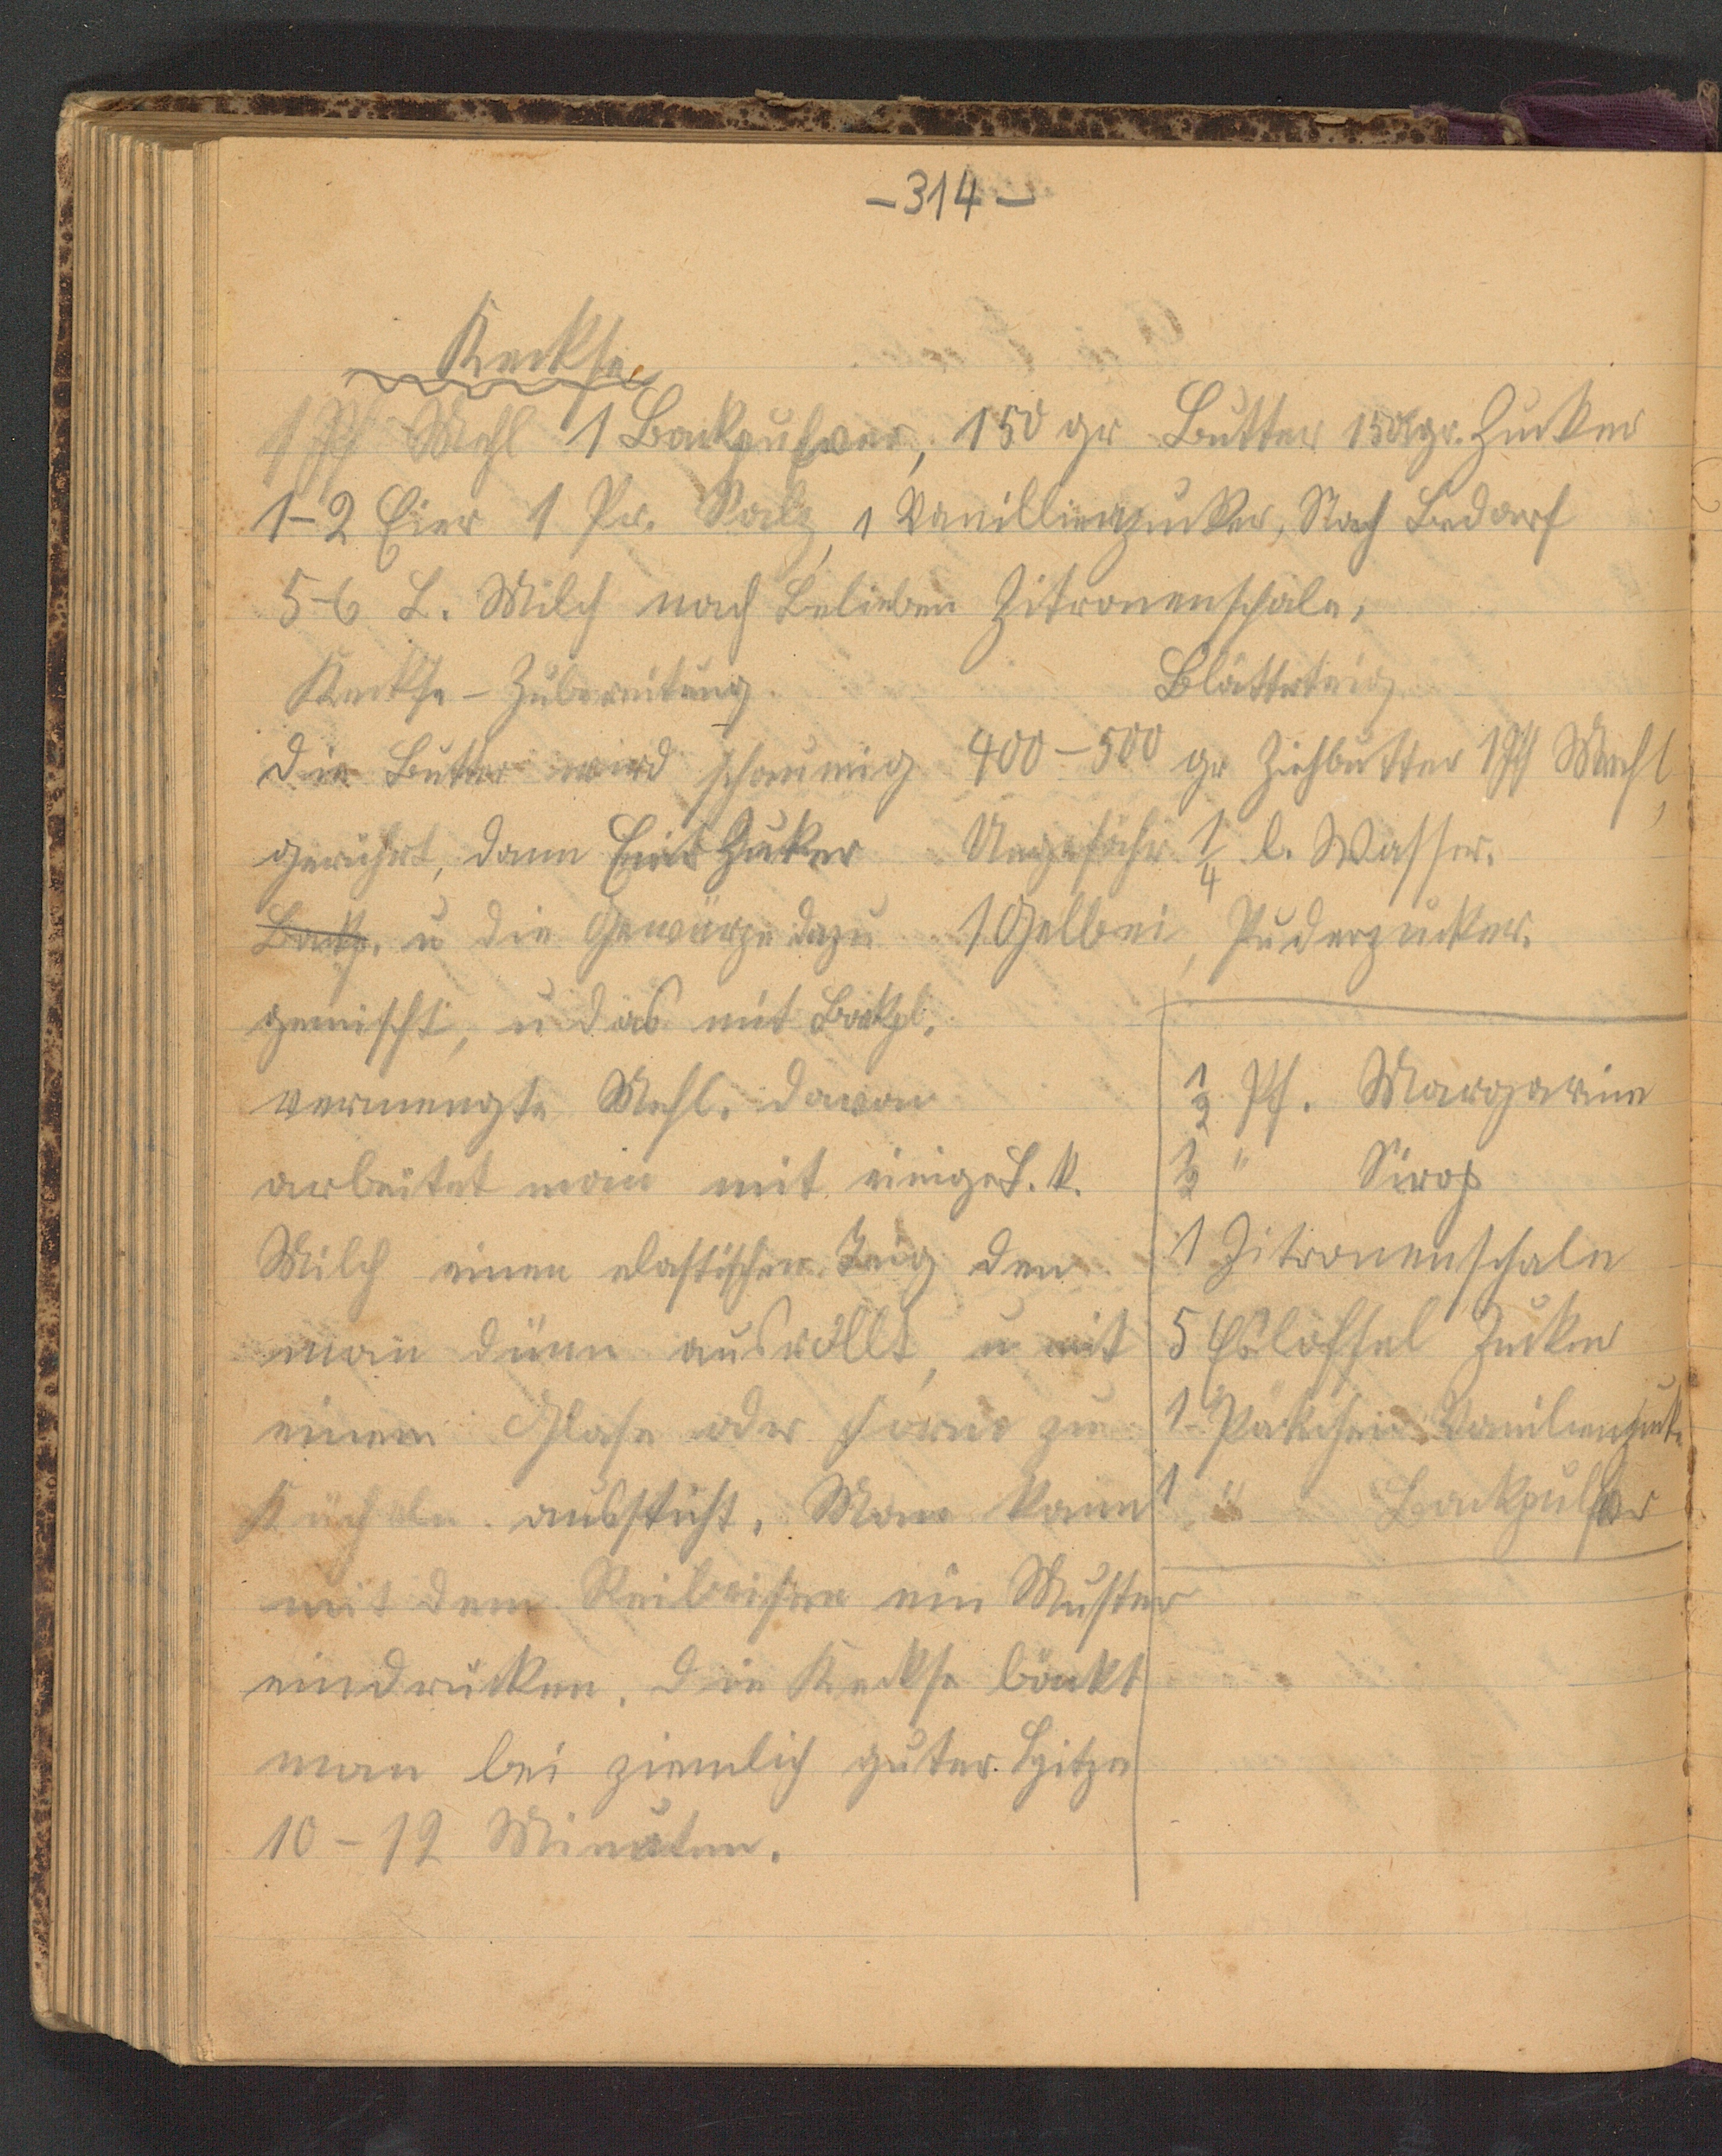 -314-
Keckse
1 Pf Mehl 1 Backpulver, 150 gr Butter 150 gr. Zucker
1-2 Eier 1 Pr. Salz, 1 Vanillienzucker, Nach Bedarf
5-6 L. Milch nach Belieben Zitronenschale,
Keckse - Zubereitung.
die Butter wird schaumig
gerührt, dann Eier Zucker
Backp. u die Gewürze dazu
gemischt, u das mit Backpl.
vermengte Mehl. davon
arbeitet man mit einige L. k.
Milch einen elastischen Teig den
man dünn ausrollt, u mit
einem Glase oder Form zu
Kücheln aussticht. Man kann
mit dem Reibeisen ein Muster
eindrücken. die Keckse bäckt
man bei ziemlich guter Hitze
10-12 Minuten.
Blätterteig
400-500 gr Ziehbutter 1 Pf Mehl,
Ungefähr 1/4 l. Wasser.
1 Gelbei, Puderzucker.
1/2 Pf. Margarine
1/2 " Sirop
1 Zitronenschale
5 Eßlöffel Zucker
1 Päckchen Vanilienzuck.
1 " Backpulver